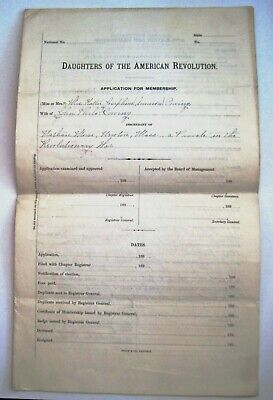 State
National No. No.
DAUGHTERS OF THE AMERICAN REVOLUTION.
APPLICATION FOR MEMBERSHIP.
(Miss or Mrs.) Mrs. Josephine
Wife of John
DESCENDANT OF
Mass. a Private in the
Revolutionary War
Application examined and approved Accepted by the Board of Management
189 189
Chapter Registrar. Chapter Secretary.
189 189
Registrar General. Secretary General.
DATES
Application, 189
Filed with Chapter Registrar 189
Notification of election, 189
Fees paid, 189
Duplicate sent to Registrar General, 189
Duplicate received by Registrar General, 189
Certificate of Membership issued by Registrar General, 189
Badge issued by Registrar General, 189
Deceased, 189
Resigned, 189